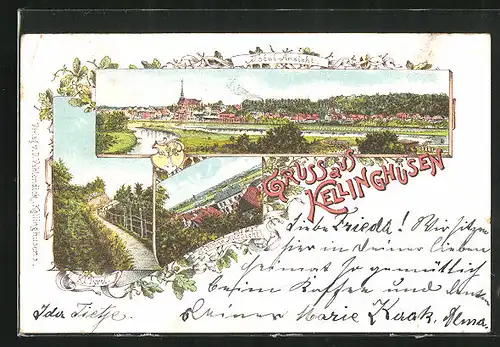 Total-Ansicht.
GRUSS aus
KELLINGHUSEN
Liebe Frieda! Wir sitzen
hier in Deiner lieben
Heimat so gemütlich
beim Kaffee und denken
Deiner Marie Kaak, Alma.
Ida Tietje.
Kellinghusen.